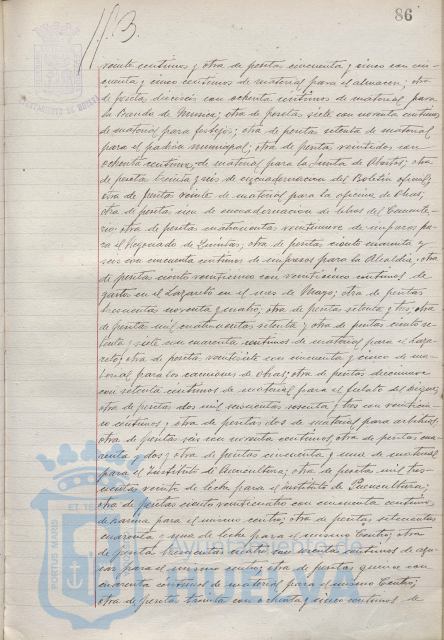 86
veinte centimos y otra de pesetas cincuenta y cinco con cin-
cuenta y cinco centimos de material para el almacen; otra
de peseta dieciseis con ochenta centimos de material para
la Banda de Musica; otra de pesetas siete con noventa centimos
de material para festejos; otra de pesetas setenta de material
para el padrón municipal; otra de pesetas veintidos con
ochenta centimos, de material para la Junta de Abastos; otra
de pesetas treinta y seis de encuadernacion del Boletin oficial;
otra de pesetas veinte de material para la oficina de Obras;
otra de pesetas una de encuadernacion de libros del Cemente-
rio; otra de pesetas cuatrocientas veintinueve de impresos pa-
ra el Negociado de Quintas; otra de pesetas ciento cuarenta y
seis con cincuenta centimos de impresos para la Alcaldia; otra
de pesetas ciento veinticinco con veinticinco centimos de
gastos en el Lazareto en el mes de Mayo; otra de pesetas
trescientas noventa y cuatro; otra de pesetas setenta y tres; otra
de pesetas mil cuatrocientas setenta y otra de pesetas ciento se-
tenta y siete con cuarenta centimos de material para el Laza-
reto; otra de pesetas veintisiete con cincuenta y cinco de ma-
terial para los camiones de Obras; otra de pesetas diecinueve
con setenta centimos de material para el
otra de pesetas dos mil sesenta y tres con veinticin-
co centimos y otra de pesetas dos de material para arbitrios;
otra de pesetas seis con noventa centimos; otra de pesetas cua-
renta y dos; otra de pesetas cincuenta y una de material
para el Instituto de Puericultura; otra de pesetas mil tres-
cientas veinte de leche para el Instituto de Puericultura;
otra de pesetas ciento veinticuatro con cincuenta centimos
de harina para el mismo centro; otra de pesetas setecientas
cuarenta y una de leche para el mismo Centro; otra
de pesetas trescientas cuatro con treinta centimos de azu-
car para el mismo centro; otra de pesetas quince con
cuarenta centimos de material para el mismo Centro;
otra de pesetas treinta con ochenta y cinco centimos de
Ayuntamiento de
HUELVA
PORTUS MARIS
ET TERRAE